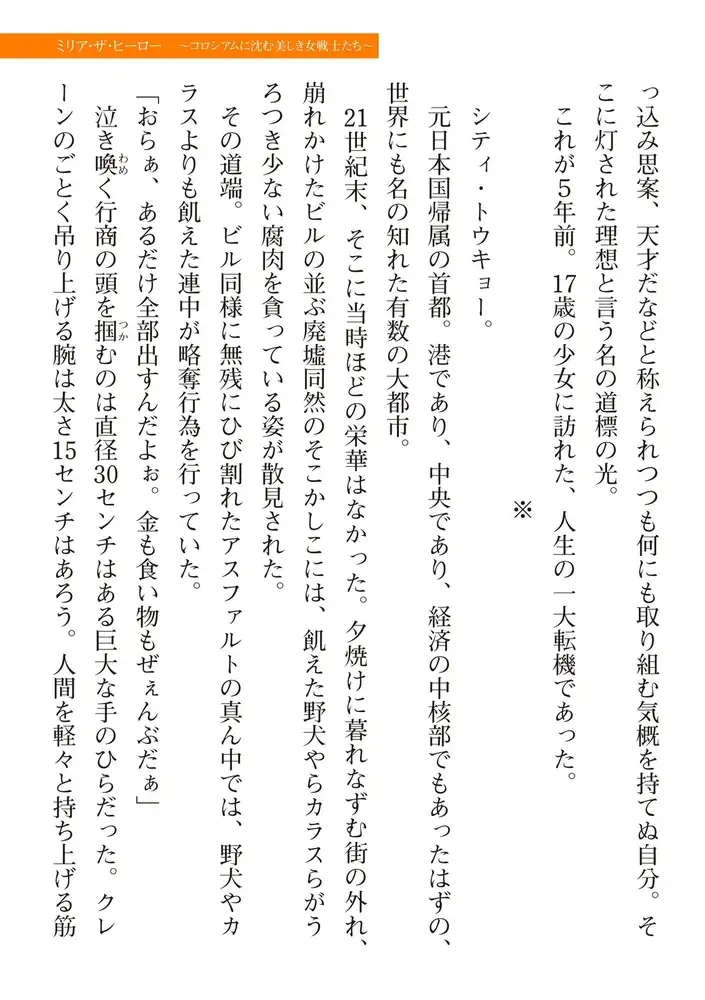 ミリア・ザ・ヒーロー　～コロシアムに沈む美しき女戦士たち～
っ込み思案、天才だなどと称えられつつも何にも取り組む気概を持てぬ自分。そ
こに灯された理想と言う名の道標の光。
これが５年前。17歳の少女に訪れた、人生の一大転機であった。
※
シティ・トウキョー。
元日本国帰属の首都。港であり、中央であり、経済の中核部でもあったはずの、
世界にも名の知れた有数の大都市。
21世紀末、そこに当時ほどの栄華はなかった。夕焼けに暮れなずむ街の外れ、
崩れかけたビルの並ぶ廃墟同然のそこかしこには、飢えた野犬やらカラスらがう
ろつき少ない腐肉を貪っている姿が散見された。
その道端。ビル同様に無残にひび割れたアスファルトの真ん中では、野犬やカ
ラスよりも飢えた連中が略奪行為を行っていた。
「おらぁ、あるだけ全部出すんだよぉ。金も食い物もぜぇんぶだぁ」
泣き喚く行商の頭を掴むのは直径30センチはある巨大な手のひらだった。クレ
ーンのごとく吊り上げる腕は太さ15センチはあろう。人間を軽々と持ち上げる筋